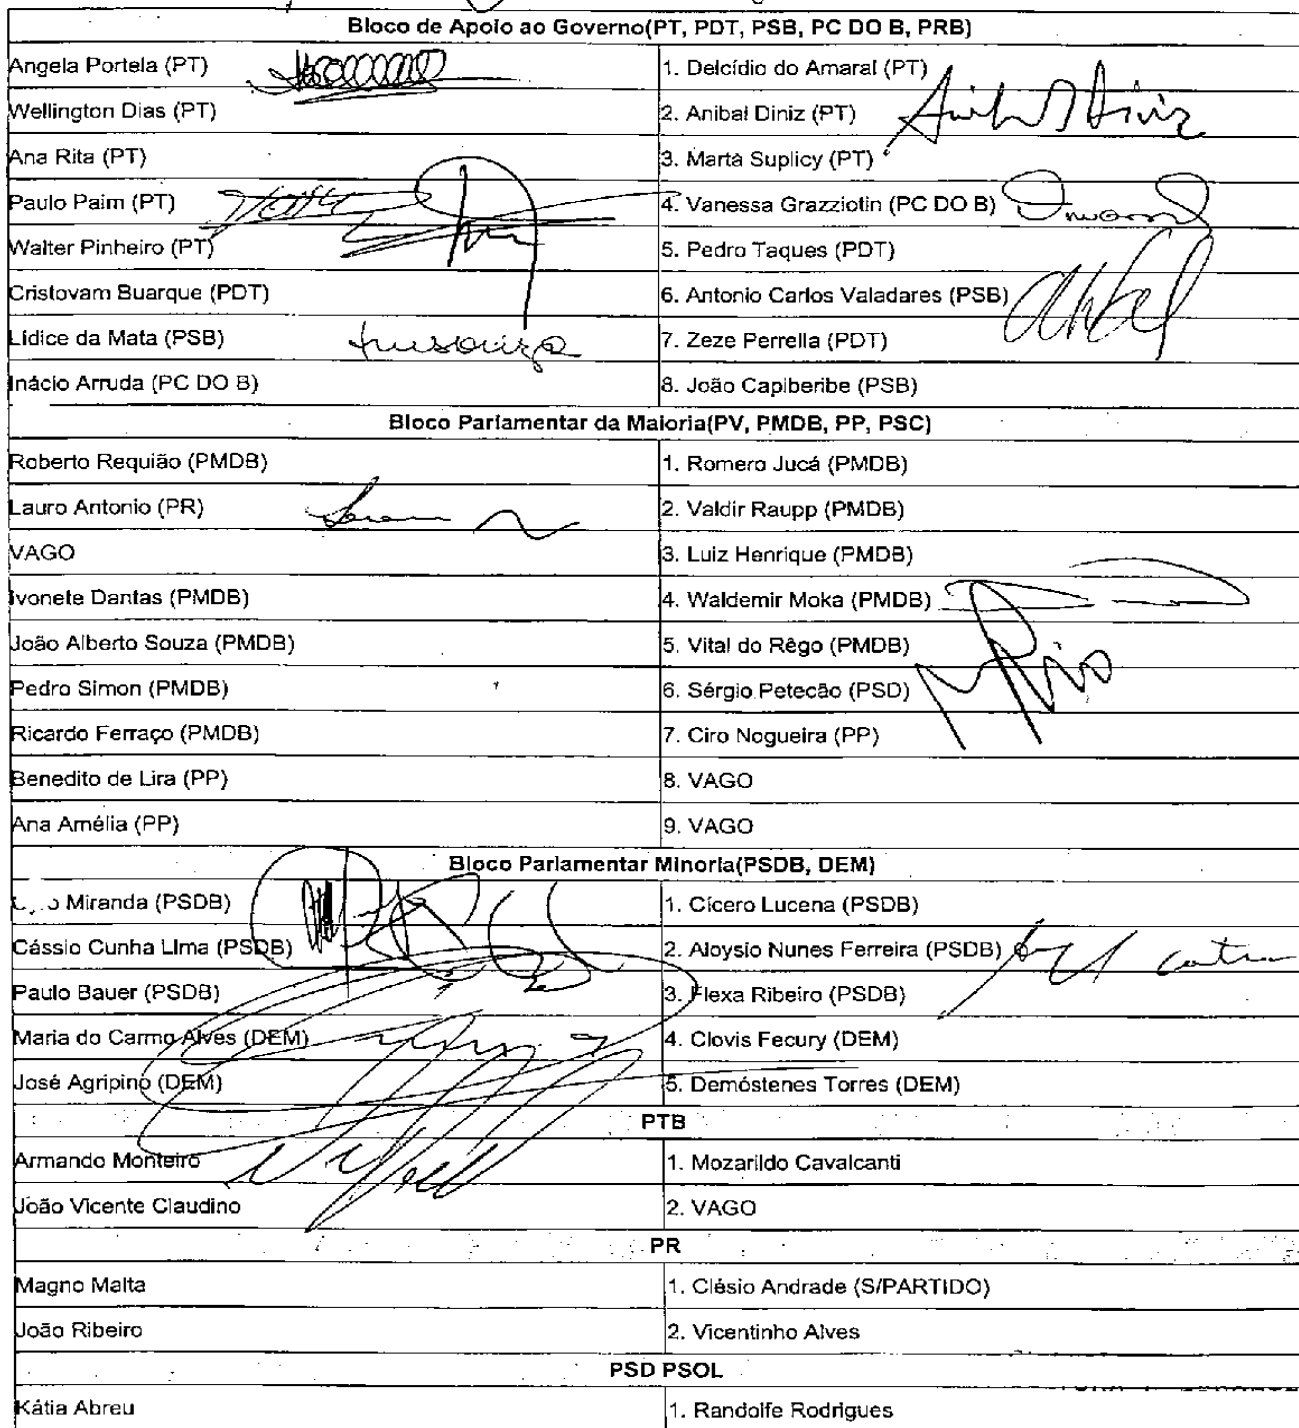 Bloco de Apoio ao Governo(PT, PDT, PSB, PC DO B, PRB)
Angela Portela (PT) 1. Delcídio do Amaral (PT)
Wellington Dias (PT) 2. Anibal Diniz (PT) Anibal Diniz
Ana Rita (PT) 3. Marta Suplicy (PT)
Paulo Paim (PT) 4. Vanessa Grazziotin (PC DO B)
Walter Pinheiro (PT) 5. Pedro Taques (PDT)
Cristovam Buarque (PDT) 6. Antonio Carlos Valadares (PSB)
Lídice da Mata (PSB) 7. Zeze Perrella (PDT)
Inácio Arruda (PC DO B) 8. João Capiberibe (PSB)
Bloco Parlamentar da Maioria(PV, PMDB, PP, PSC)
Roberto Requião (PMDB) 1. Romero Jucá (PMDB)
Lauro Antonio (PR) 2. Valdir Raupp (PMDB)
VAGO 3. Luiz Henrique (PMDB)
Ivonete Dantas (PMDB) 4. Waldemir Moka (PMDB)
João Alberto Souza (PMDB) 5. Vital do Rêgo (PMDB)
Pedro Simon (PMDB) 6. Sérgio Petecão (PSD)
Ricardo Ferraço (PMDB) 7. Ciro Nogueira (PP)
Benedito de Lira (PP) 8. VAGO
Ana Amélia (PP) 9. VAGO
Bloco Parlamentar Minoria(PSDB, DEM)
Miranda (PSDB) 1. Cícero Lucena (PSDB)
Cássio Cunha Lima (PSDB) 2. Aloysio Nunes Ferreira (PSDB)
Paulo Bauer (PSDB) 3. Flexa Ribeiro (PSDB)
Maria do Carmo Alves (DEM) 4. Clovis Fecury (DEM)
José Agripino (DEM) 5. Demóstenes Torres (DEM)
PTB
Armando Monteiro 1. Mozarildo Cavalcanti
João Vicente Claudino 2. VAGO
PR
Magno Malta 1. Clésio Andrade (S/PARTIDO)
João Ribeiro 2. Vicentinho Alves
PSD PSOL
Kátia Abreu 1. Randolfe Rodrigues